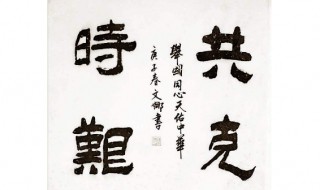 共克
時艱
舉國同心天佑中華
庚子春文卿書